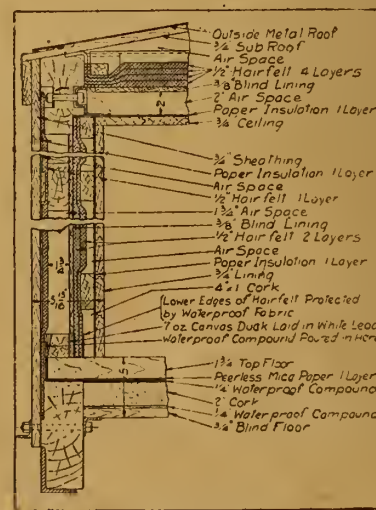 Outside Metal Roof
3/4 Sub Roof
Air Space
1/2" Hairfelt 4 Layers
3/8" Blind Lining
2" Air Space
Paper Insulation 1 Layer
3/4" Ceiling
3/4" Sheathing
Paper Insulation 1 Layer
Air Space
1/2" Hairfelt 1 Layer
1 3/4" Air Space
3/8" Blind Lining
1/2" Hair felt 2 Layers
Air Space
Paper Insulation 1 Layer
3/4" Lining
4"x1 Cork
Lower Edges of Hairfelt Protected
by Waterproof Fabric
7 oz Canvas Duak Laid in White Lead
Waterproof Compound Poured in Here
1 3/4" Top Floor
Peerless Mica Paper 1 Layer
1/4" Waterproof Compound
2" Cork
1/4" Waterproof Compound
3/4" Blind Floor
2"
5"